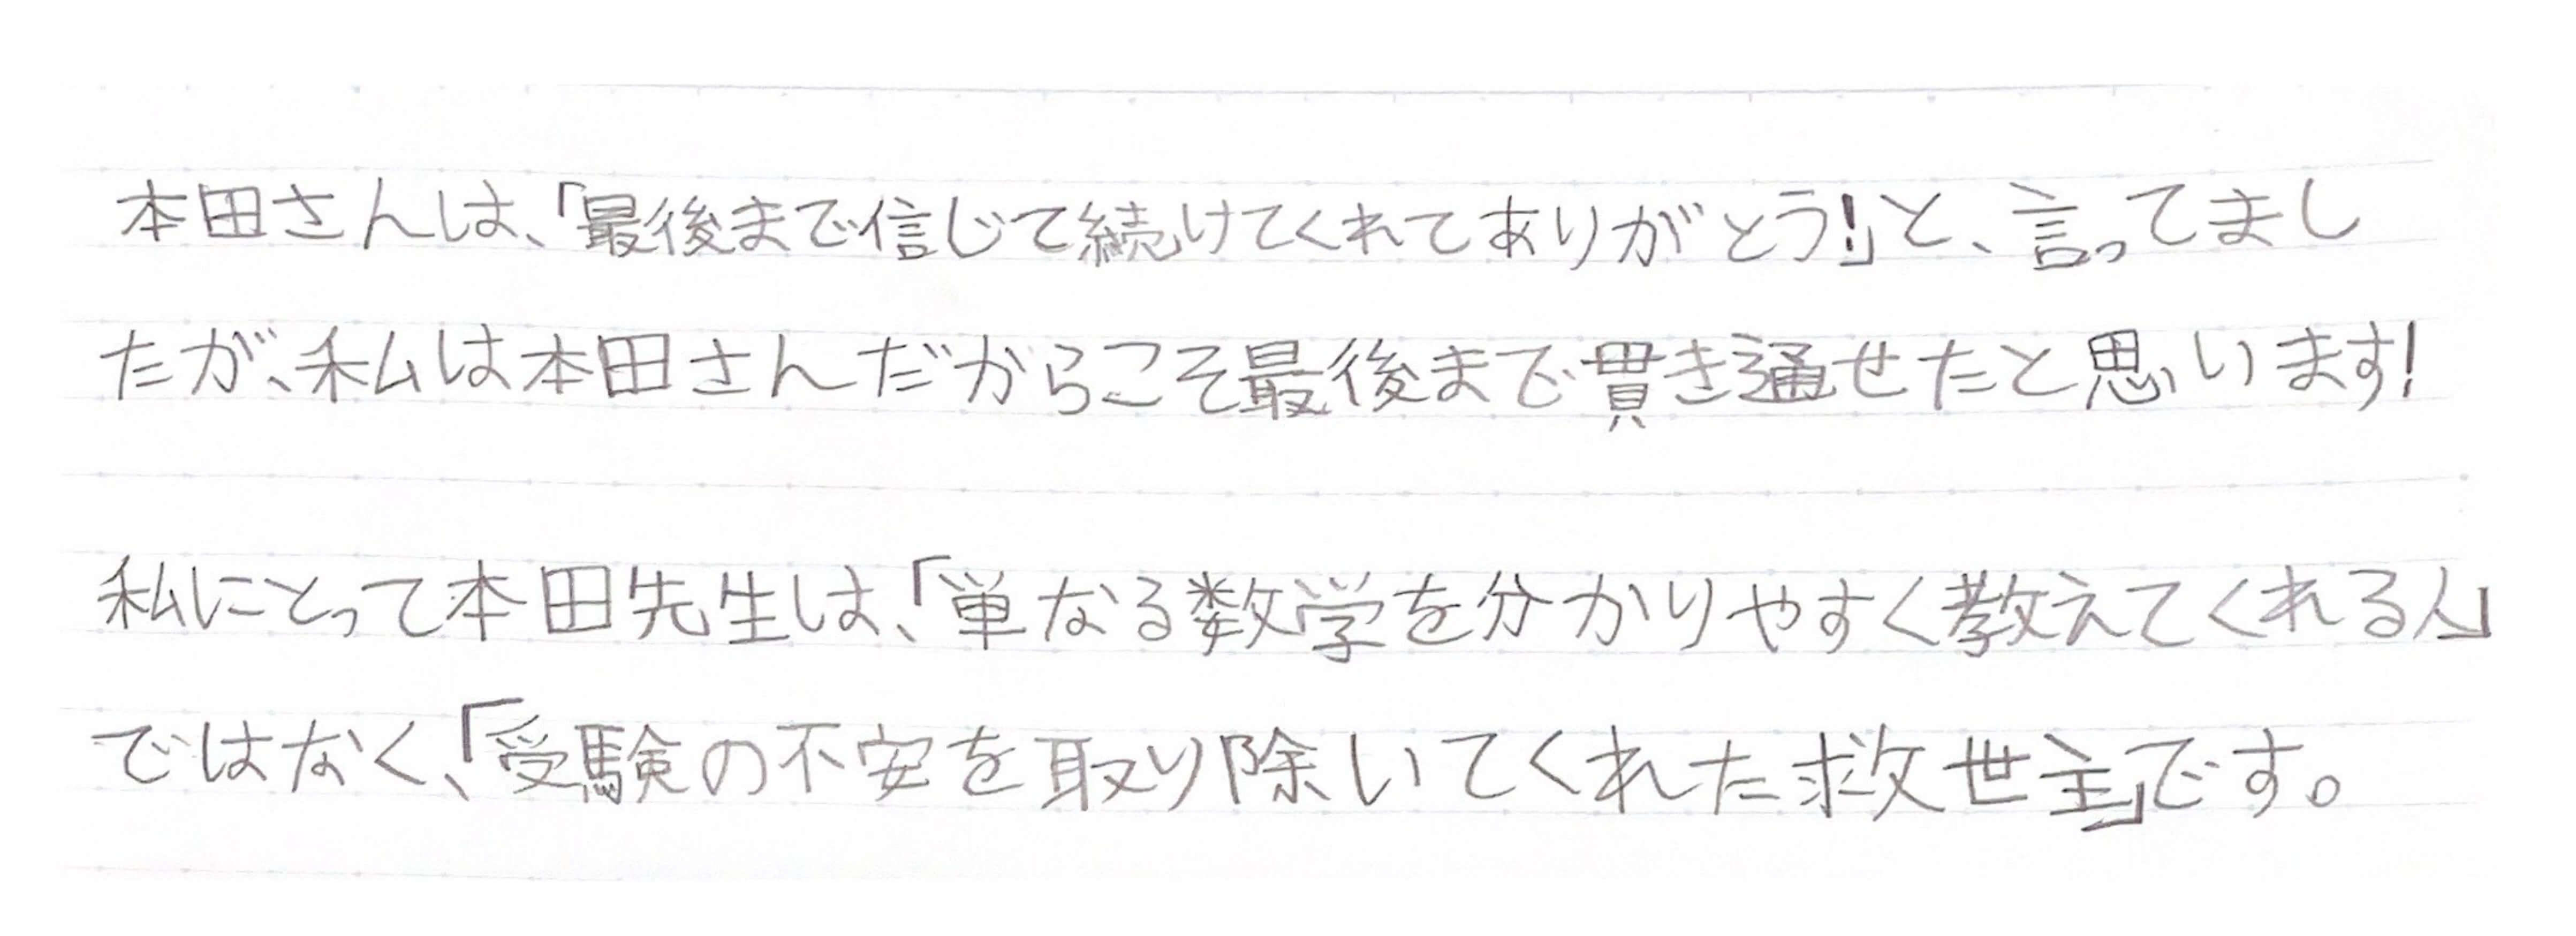 本田さんは、「最後まで信じて続けてくれてありがとう!」と、言ってまし
たが、私は本田さんだからこそ最後まで貫き通せたと思います!
私にとって本田先生は、「単なる数学を分かりやすく教えてくれる人」
ではなく、「受験の不安を取り除いてくれた救世主」です。